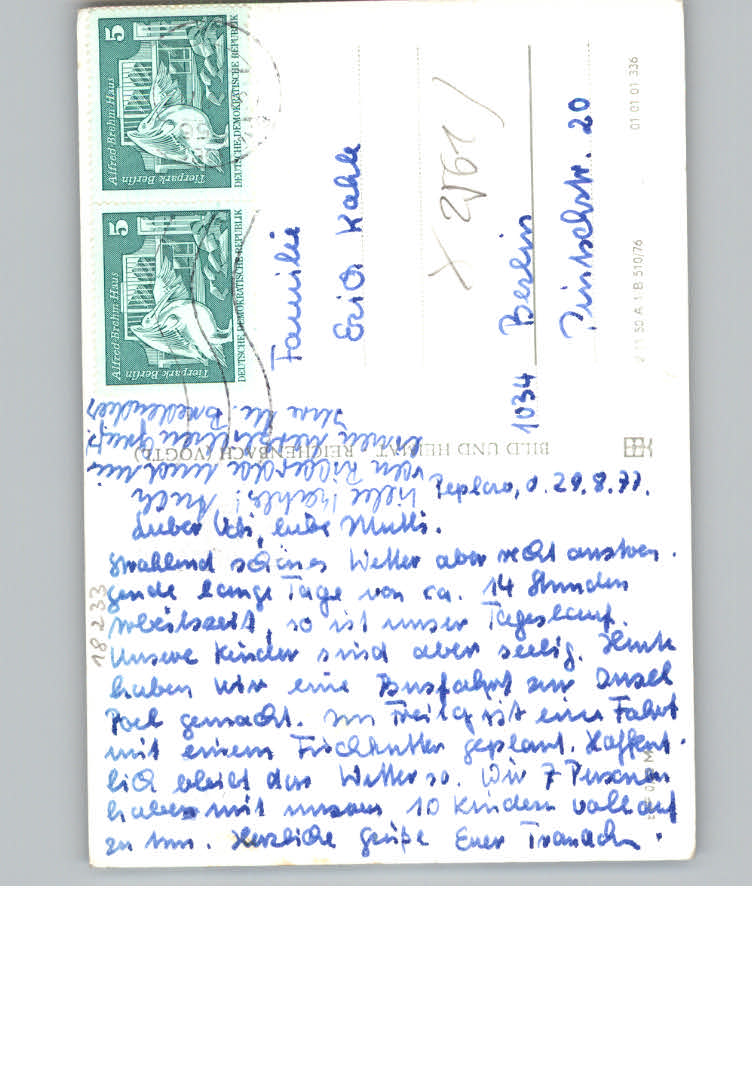 Alfred-Brehm-Haus
Tierpark Berlin
5
DEUTSCHE DEMOKRATISCHE REPUBLIK
Alfred-Brehm-Haus
Tierpark Berlin
5
DEUTSCHE DEMOKRATISCHE REPUBLIK
Familie
Erich Kahle
1034 Berlin
Pintschstr. 20
01 01 01 336
BILD UND HEIMAT REICHENBACH (VOGTL)
d. 29.8.77.
Lieber Vati, liebe Mutti.
Strahlend schönes Wetter aber recht anstren-
gende lange Tage von ca. 14 Stunden
Arbeitszeit, so ist unser Tageslauf.
Unsere Kinder sind aber seelig. Heute
haben wir eine Busfahrt zur Insel
Poel gemacht. Am Freitag ist eine Fahrt
mit einem Fischkutter geplant. Hoffent-
lich bleibt das Wetter so. Wir 7 Personen
haben mit unseren 10 Kindern voll auf
zu tun. Herzliche Grüße Euer
Liebe Kahles! Auch
von
einen herzlichen Gruß
Ihre
18233